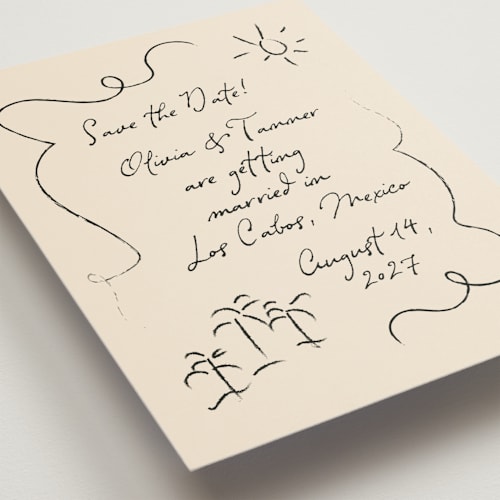 Save the Date!
Olivia & Tanner
are getting
married in
Los Cabos, Mexico
August 14,
2027